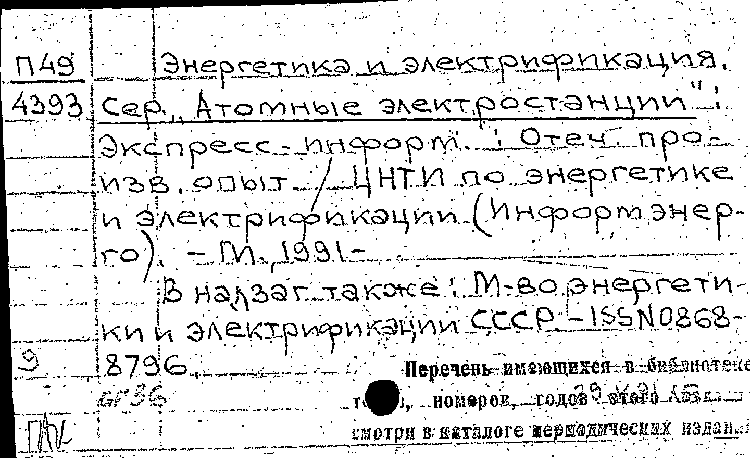 П49 Энергетика и электрификация.
4393 Сер. „Атомные электростанции":
Экспресс-информ.": Отеч. про-
изв. опыт / ЦНТИ по энергетике
и электрификации (Информэнер-
го). - М., 1991-
В надзаг. также: М-во энергети-
ки и электрификации СССР. - ISSN 0868-
9 8796.
Перечень имеющихся в библиотеке
номеров, годов этого
смотри в каталоге периодических издан